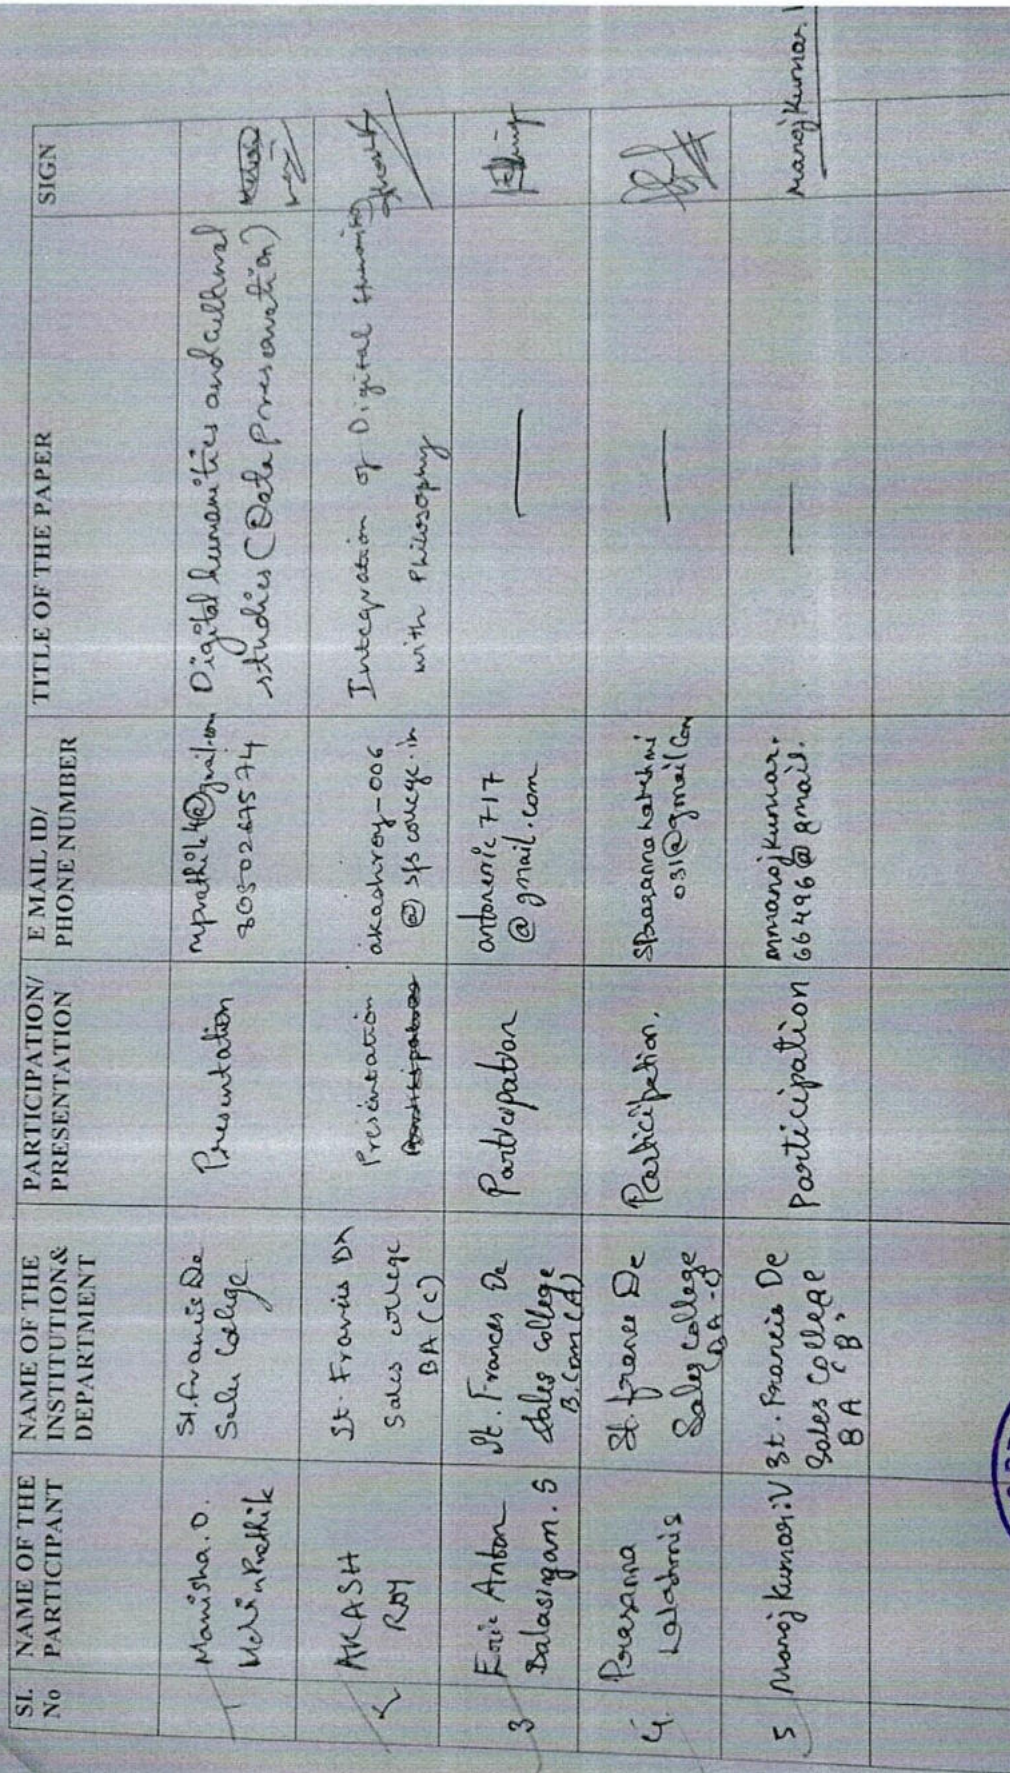 SI. No
NAME OF THE PARTICIPANT
NAME OF THE INSTITUTION& DEPARTMENT
PARTICIPATION/ PRESENTATION
E MAIL ID/ PHONE NUMBER
TITLE OF THE PAPER
SIGN
1
Manisha. D.
St. Francis De
Sales College
Presentation
Digital humanities and cultural
studies (Data Preservation)
2
AKASH
ROY
St. Francis De
Sales college
BA (C)
Presentation
akashroy-006
@ sfs college.in
Integration of Digital Humanity
with Philosophy
3
Eric Anton
Balasingam. S
St. Frances De
Sales College
B.Com (A)
Participation
antoneric 717
@ gmail.com
—
4.
Prasanna
Lakshmi S
St. france De
Sales College
BA -
Participation.
031@gmail.com
—
5
Manoj Kumar.V
St. Francis De
Sales College
BA 'B'
Participation
mmanojkumar.
66496@gmail.
—
Manoj Kumar.